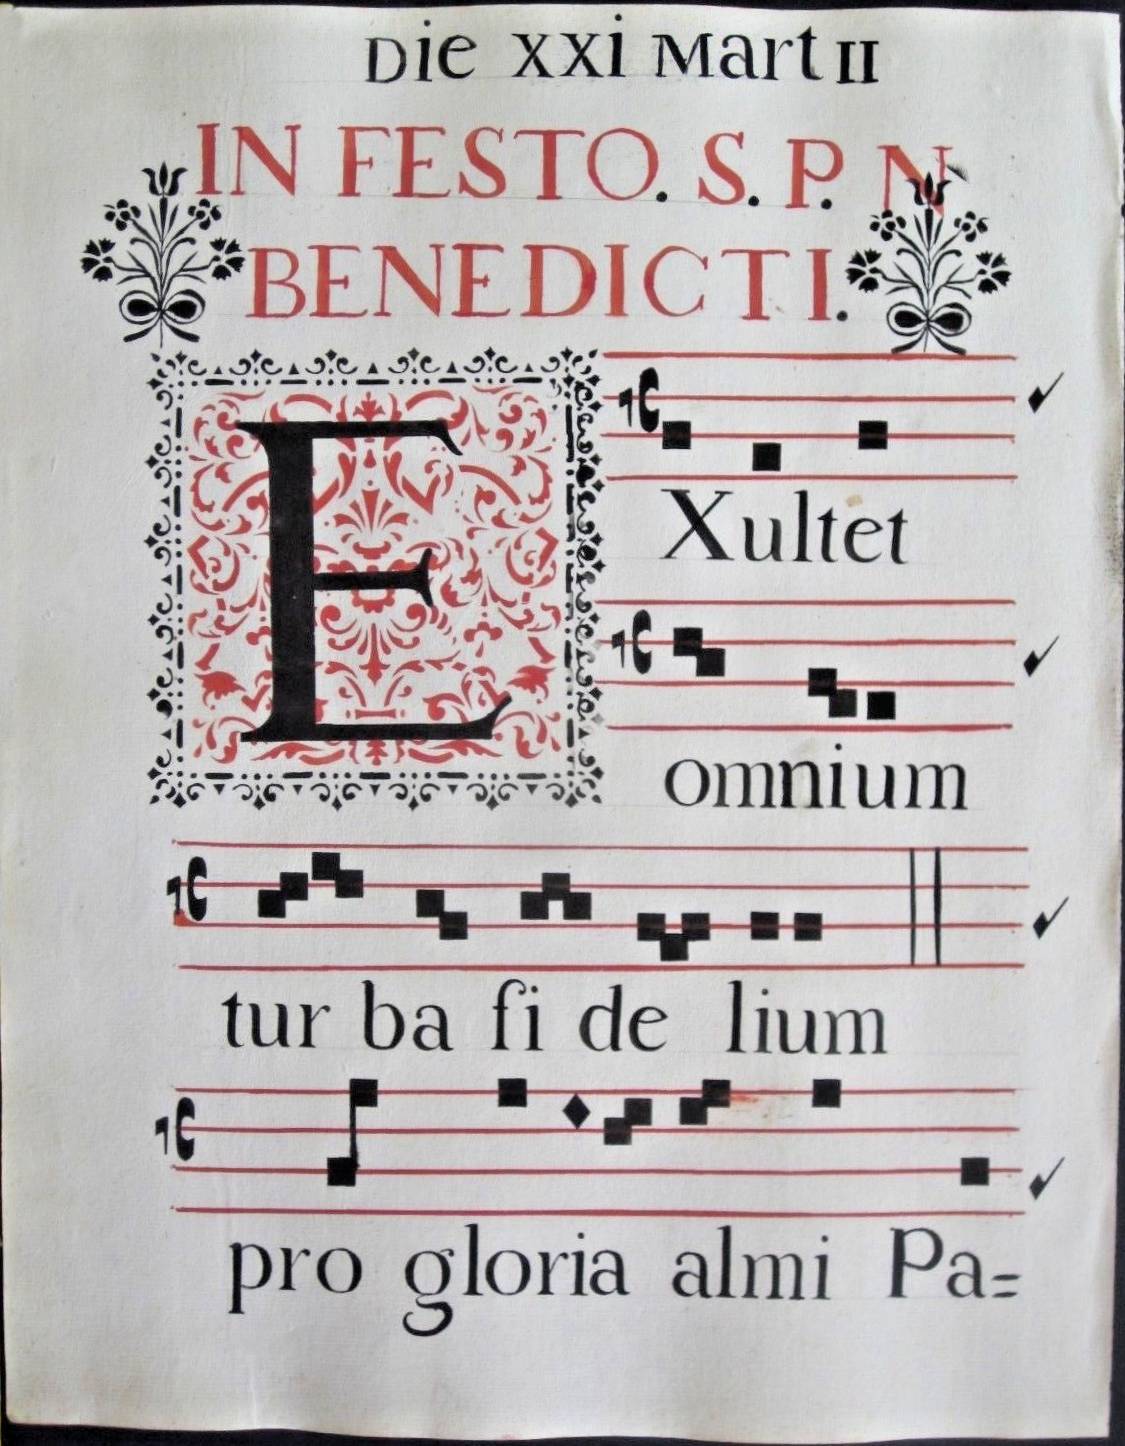 Die XXI Martii
IN FESTO. S. P. N
BENEDICTI.
EXultet
omnium
tur ba fi de lium
pro gloria almi Pa=